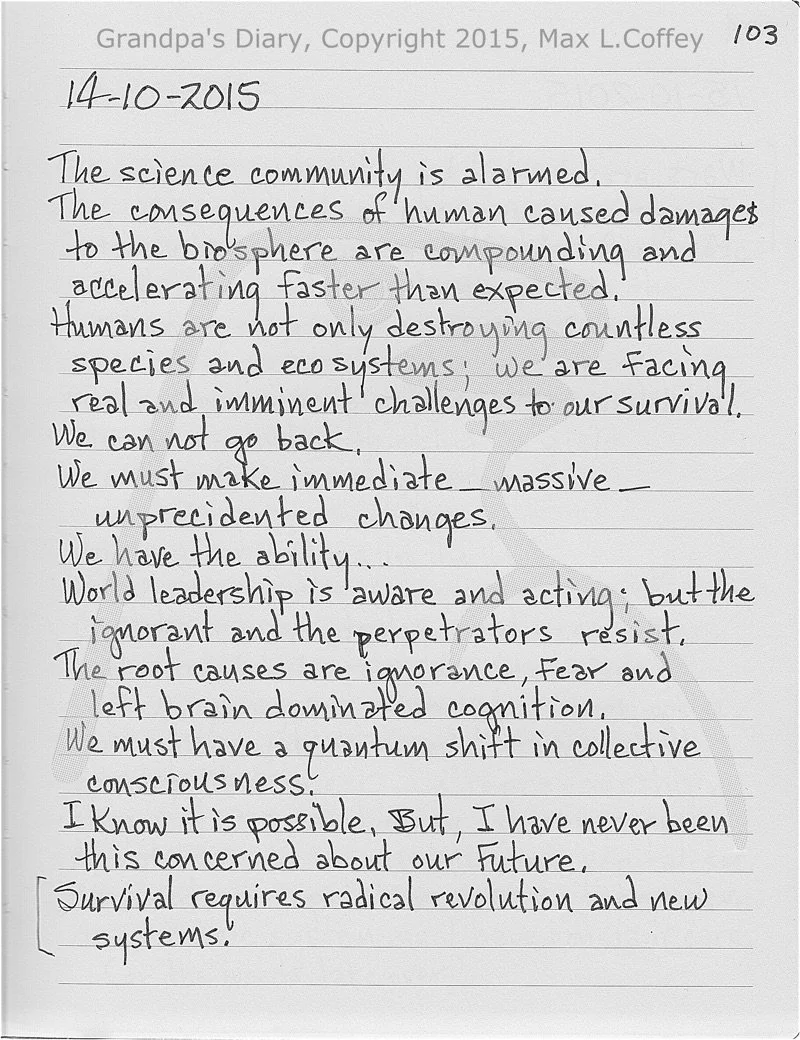 Grandpa's Diary, Copyright 2015, Max L.Coffey
103
14-10-2015
The science community is alarmed.
The consequences of human caused damages
to the biosphere are compounding and
accelerating faster than expected.
Humans are not only destroying countless
species and eco systems; we are facing
real and imminent challenges to our survival.
We can not go back.
We must make immediate — massive —
unprecidented changes.
We have the ability...
World leadership is aware and acting; but the
ignorant and the perpetrators resist.
The root causes are ignorance, fear and
left brain dominated cognition.
We must have a quantum shift in collective
consciousness.
I know it is possible. But, I have never been
this concerned about our future.
Survival requires radical revolution and new
systems.